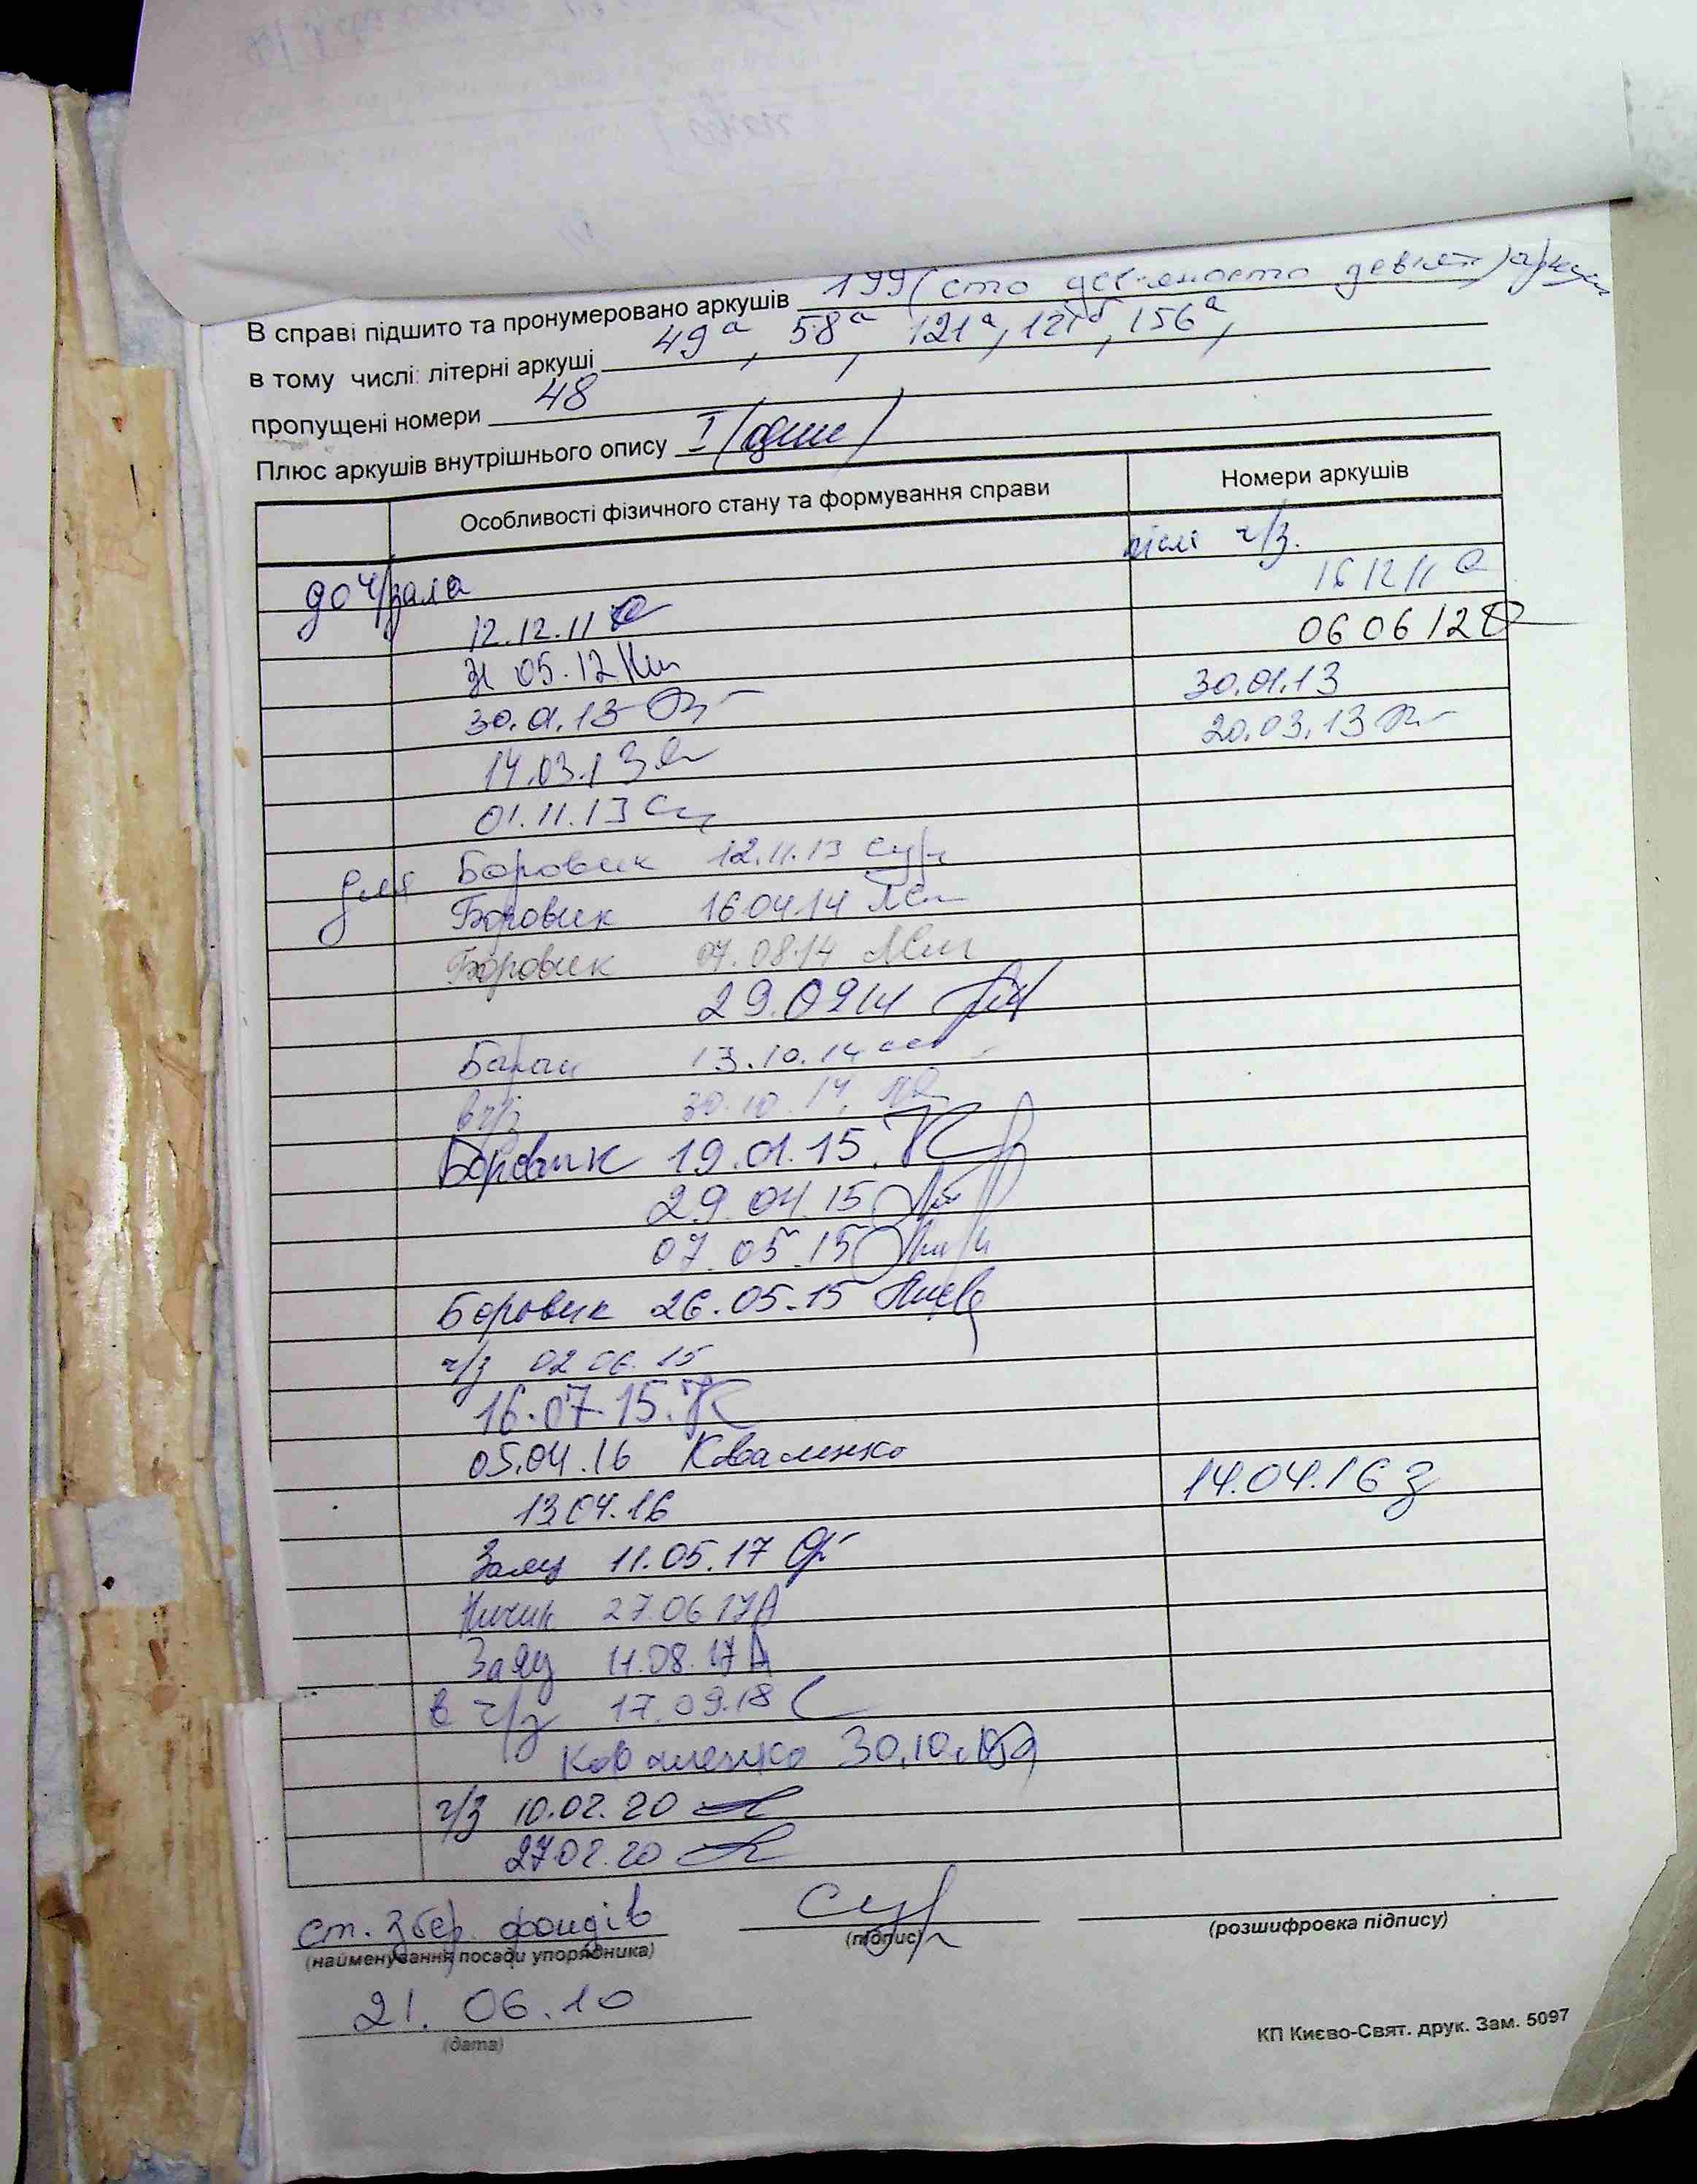 В справі підшито та пронумеровано аркушів 199 (сто дев'яносто девять) аркуш
в тому числі: літерні аркуші 49а, 58а, 121а, 121б, 156а,
пропущені номери 48
Плюс аркушів внутрішнього опису I (один)
Особливості фізичного стану та формування справи Номери аркушів
до ч/зала після ч/з.
12.12.11 16 12 11
05.12 06 06 12
30.01.13 30.01.13
14.03.13 20.03.13
01.11.13
для Боровик 12.11.13
Боровик 16 04 14
Боровик 07.08.14
29.09 14
13.10.14
в ч/з 30.10.14
Боровик 19.01.15
29.04.15
07.05.15
Боровик 26.05.15
ч/з 02 06.15
16.07.15
05.04.16 Коваленко
13.04.16 14.04.16
Заяц 11.05.17
27.06 17
Заяц 11.08.17
в ч/з 17.09.18
Коваленко 30.10.
ч/з 10.02.20
27.02.20
ст. збер. фондів
(найменування посади упорядника) (підпис) (розшифровка підпису)
21.06.10
(дата)
КП Києво-Свят. друк. Зам. 5097